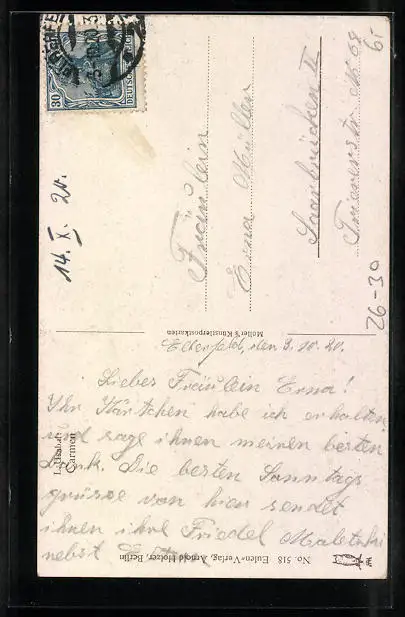 30
DEUTSCHES
14. X. 20.
Fräulein
Erna Müller
Saarbrücken II
Triererstr. No 68
61
26-30
Möller's Künstlerpostkarten
Elberfeld, den 9. 10. 20.
Liebes Fräulein Erna!
Ihr Kärtchen habe ich erhalten
und sage ihnen meinen besten
Dank. Die besten Sonntags
grüsse von hier sendet
ihnen ihre Friedel
nebst
Carmen
No. 518 Eulen-Verlag, Arnold Holzer, Berlin